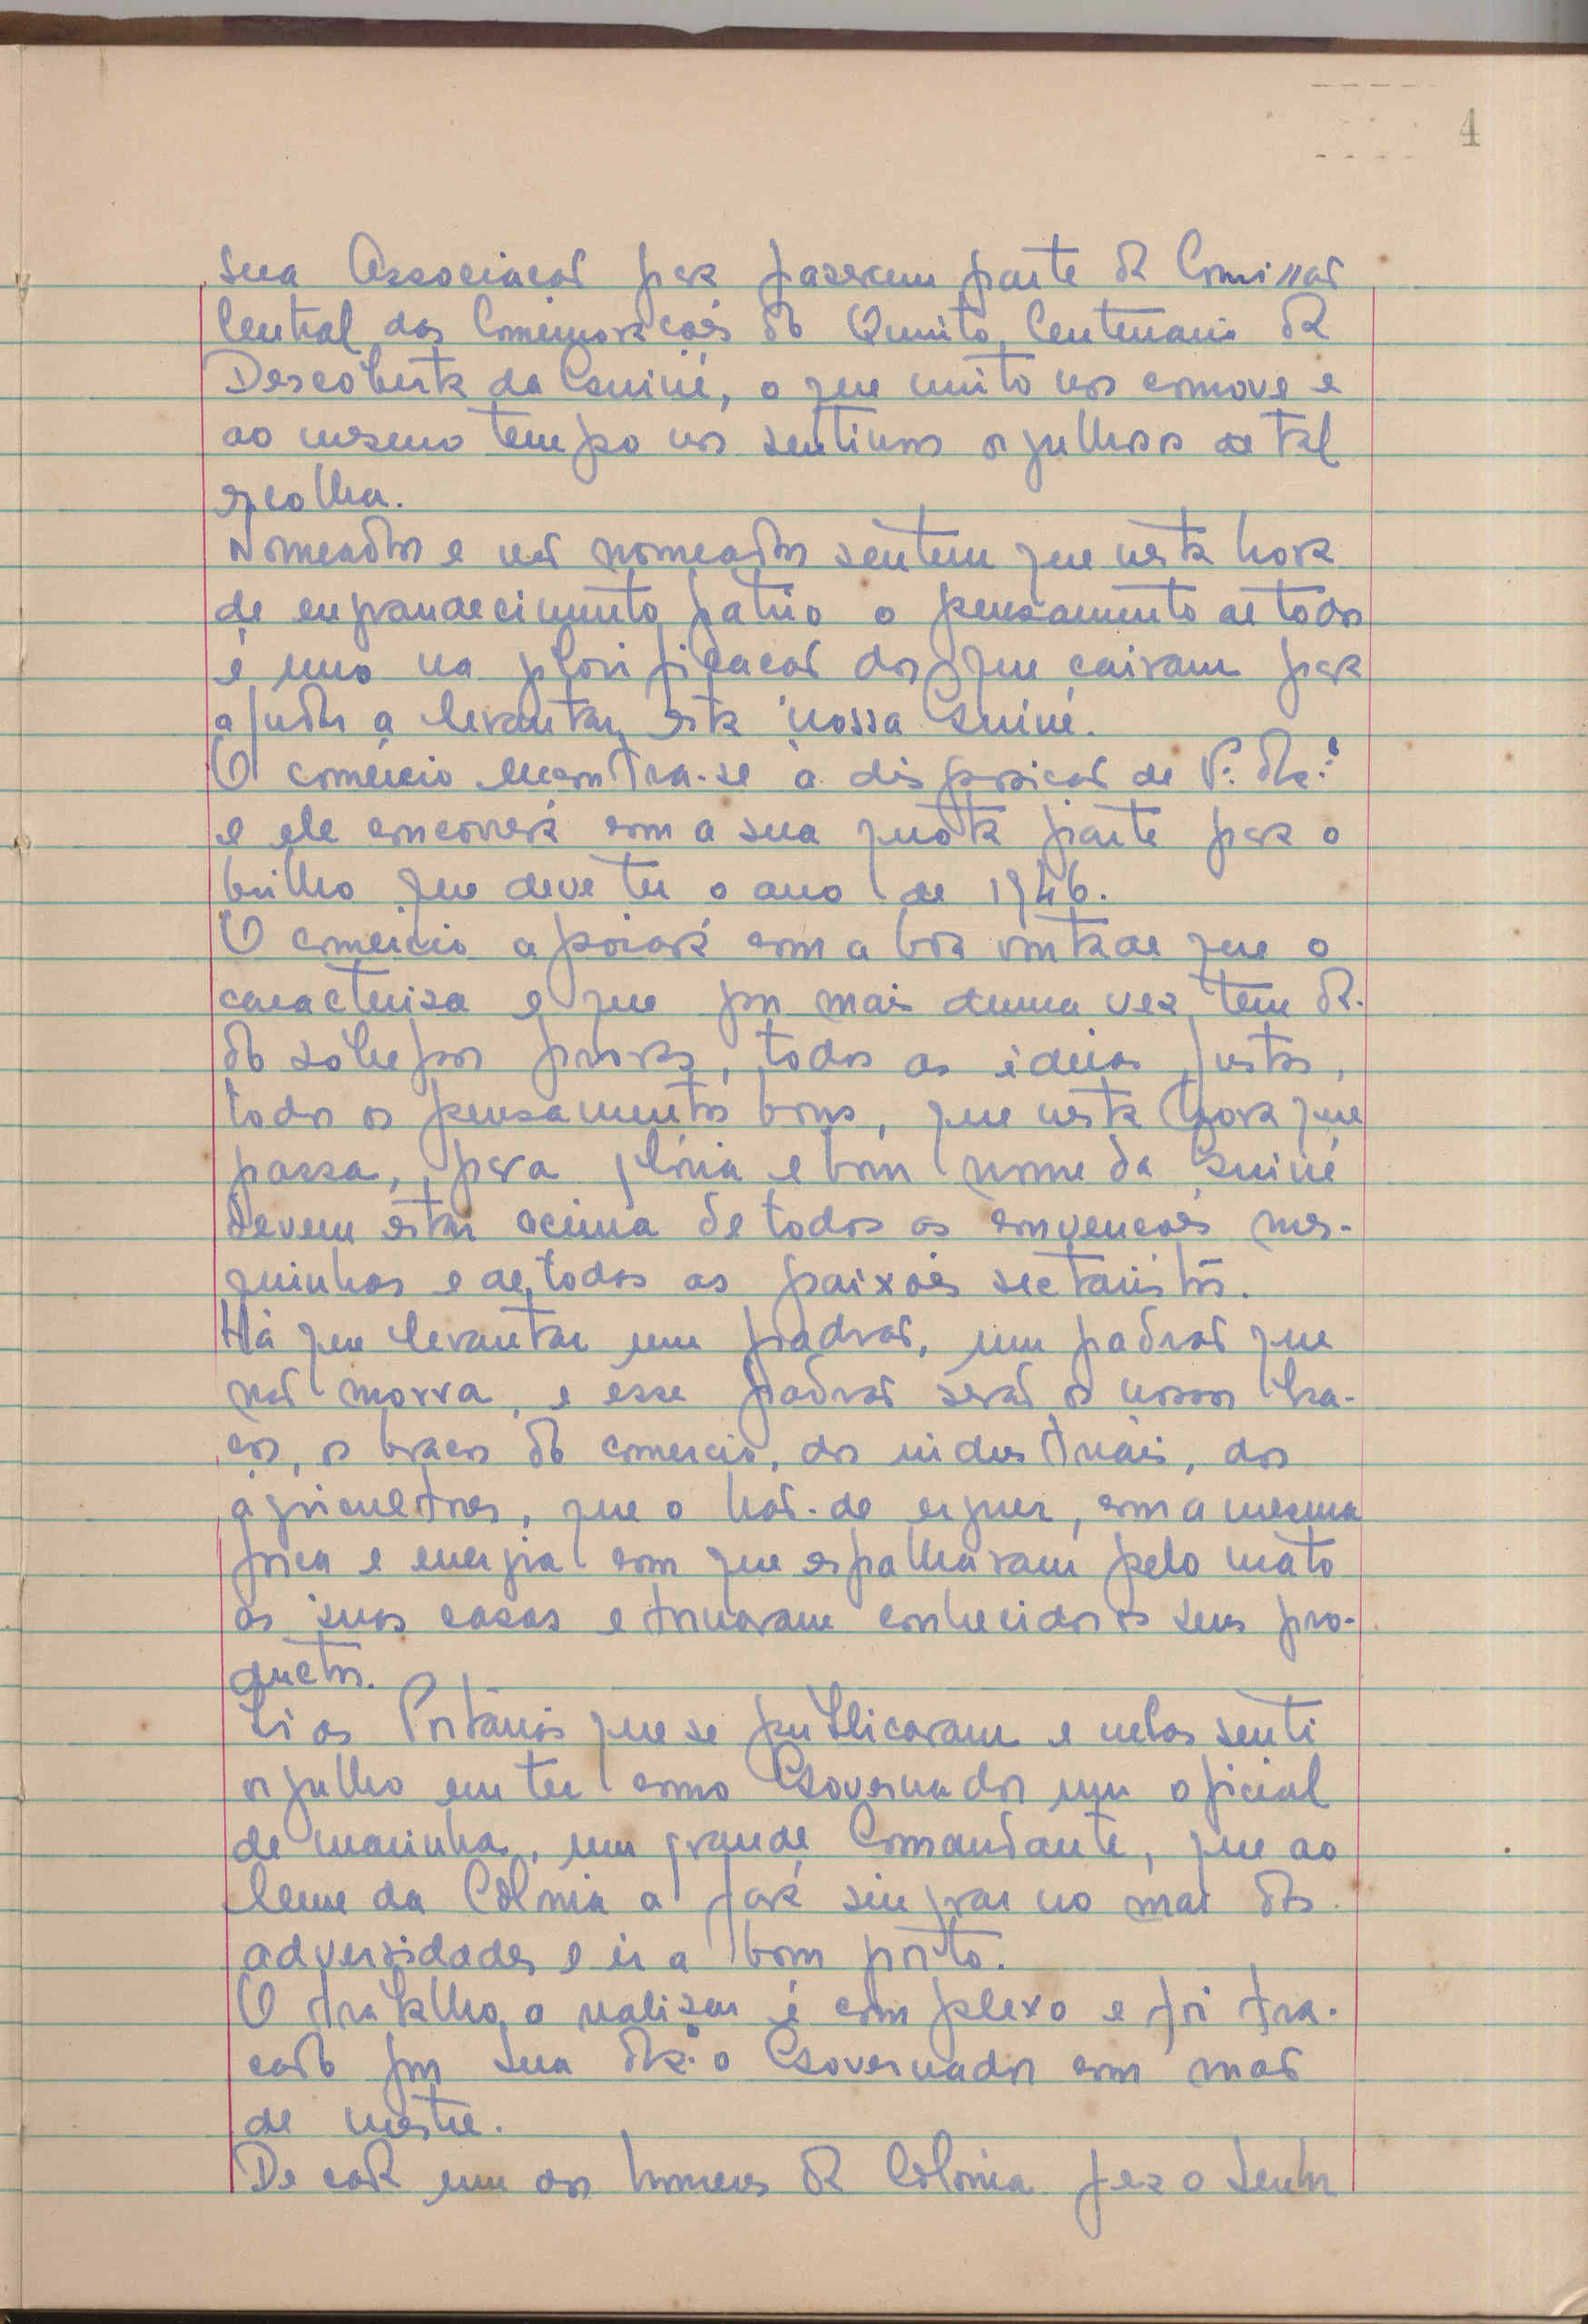 4
sua Associação para fazerem parte da Comissão
Central das Comemorações do Quinto Centenario da
Descoberta da Guiné, o que muito nos comove e
ao mesmo tempo nos sentimos orgulhosos de tal
escolha.
Nomeados e não nomeados sentem que nesta hora
de engrandecimento patrio o pensamento de todos
é uno na glorificação dos que cairam para
ajudar a levantar esta nossa Guiné.
O comércio encontra-se à disposição de V. Ex.ª
e ele concorrerá com a sua quota parte para o
brilho que deve ter o ano de 1946.
O comércio apoiará com a boa vontade que o
caracterisa e que por mais duma vez tem da-
do sobejas provas, todas as ideias justas,
todos os pensamentos bons, que nesta hora que
passa, para gloria e bom nome da Guiné
devem estar acima de todas as convenções mes-
quinhas e de todas as paixões sectaristas.
Há que levantar um padrão, um padrão que
não morra, e esse padrão serão os nossos bra-
ços, os braços do comercio, dos industriais, dos
agricultores, que o hão-de erguer, com a mesma
força e energia com que espalharam pelo mato
as suas casas e tornaram conhecidos os seus pro-
ductos.
Li as Portarias que se publicaram e nelas senti
orgulho em ter como Governador um oficial
de marinha, um grande Comandante, que ao
leme da Colonia a fará singrar no mar das
adversidades e ir a bom porto.
O trabalho a realizar é complexo e foi tra-
çado por Sua Ex.ª o Governador com mão
de mestre.
De cada um dos homens da Colonia fez o Senhor